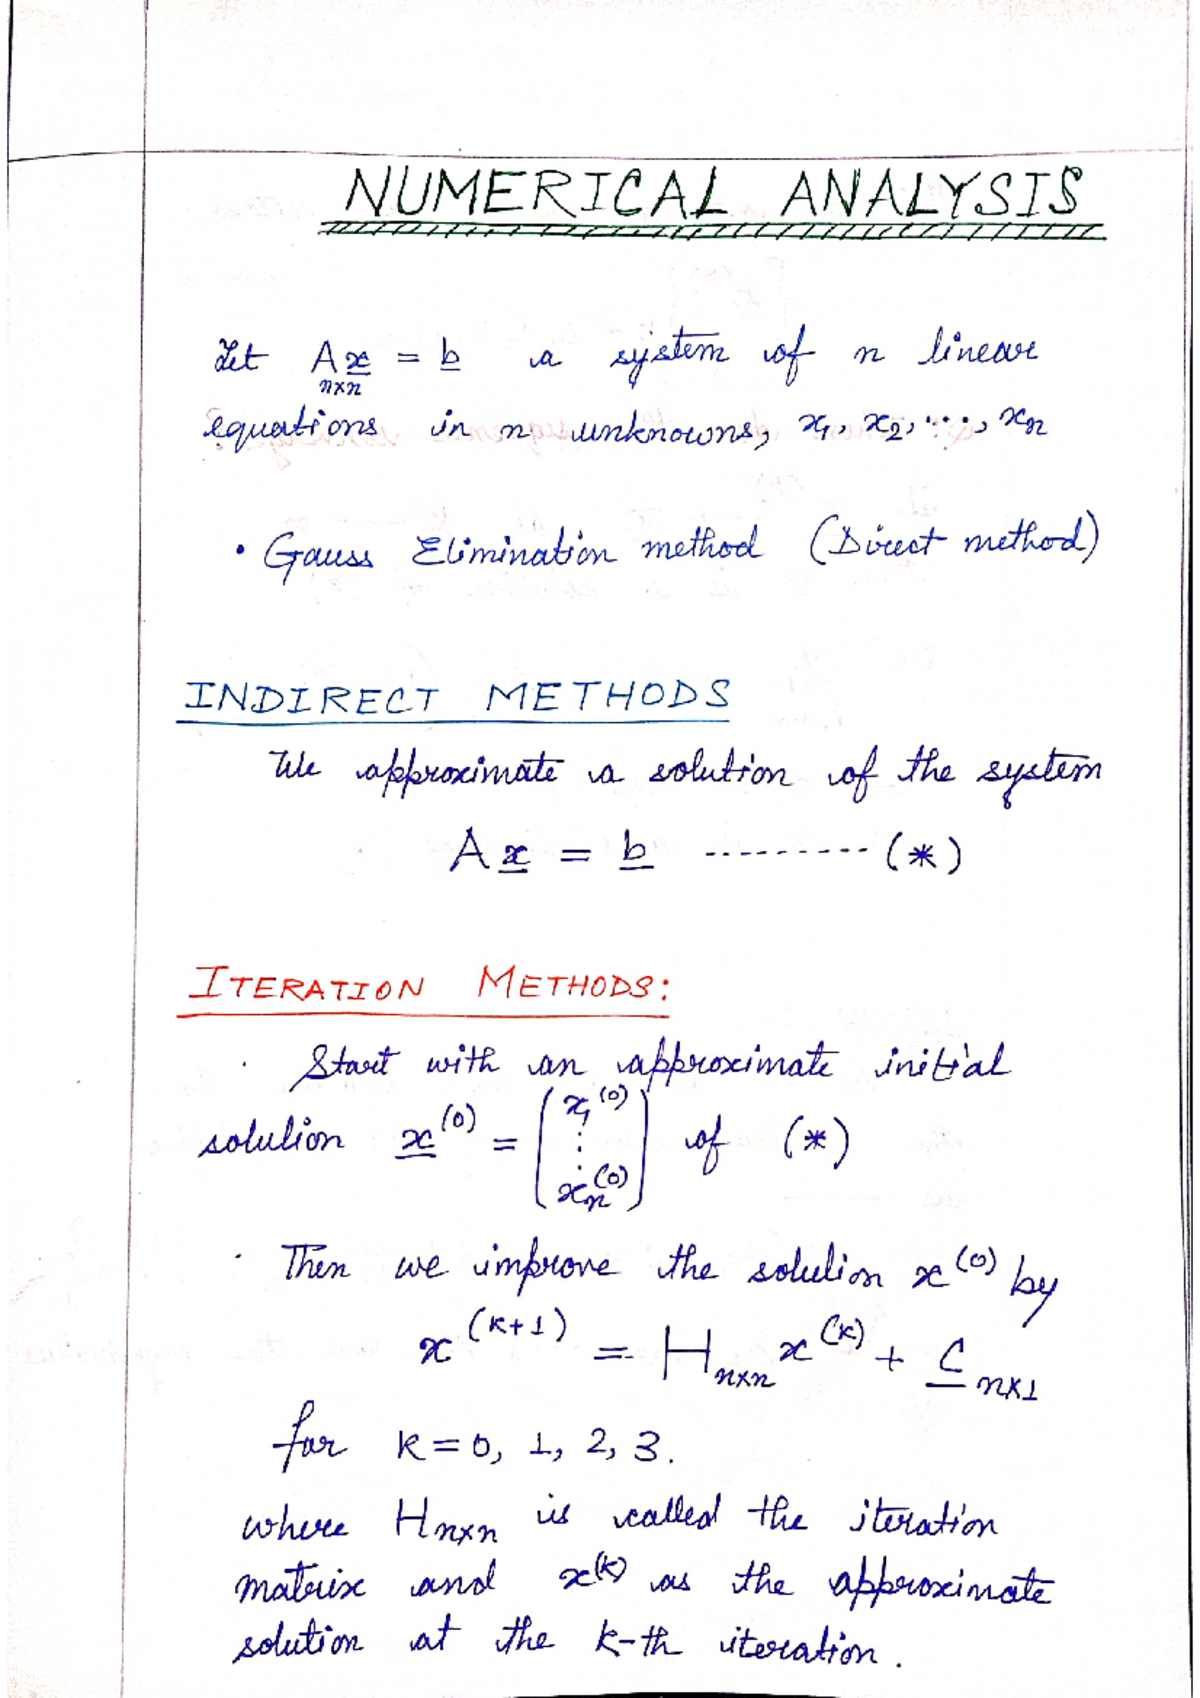 NUMERICAL ANALYSIS
Let A x = b a system of n linear
n×n
equations in n unknowns, x₁, x₂, ..., xₙ
• Gauss Elimination method (Direct method)
INDIRECT METHODS
We approximate a solution of the system
A x = b --------- (*)
ITERATION METHODS:
· Start with an approximate initial
solution x⁽⁰⁾ = (x₁⁽⁰⁾ ⋮ xₙ⁽⁰⁾) of (*)
· Then we improve the solution x⁽⁰⁾ by
x⁽ᵏ⁺¹⁾ = Hₙₓₙ x⁽ᵏ⁾ + C ₙₓ₁
for k = 0, 1, 2, 3.
where Hₙₓₙ is called the iteration
matrix and x⁽ᵏ⁾ as the approximate
solution at the k-th iteration.